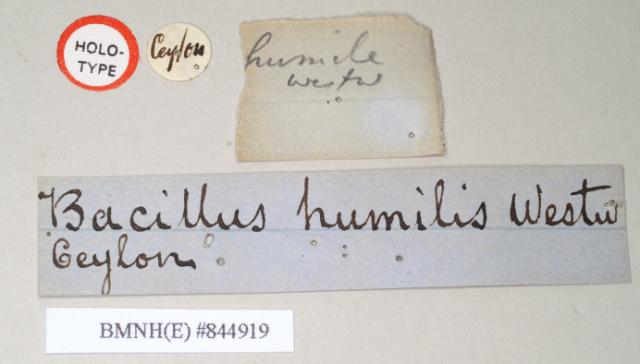 HOLO-
TYPE
Ceylon
humile
westw
Bacillus humilis Westw
Ceylon
BMNH(E) #844919